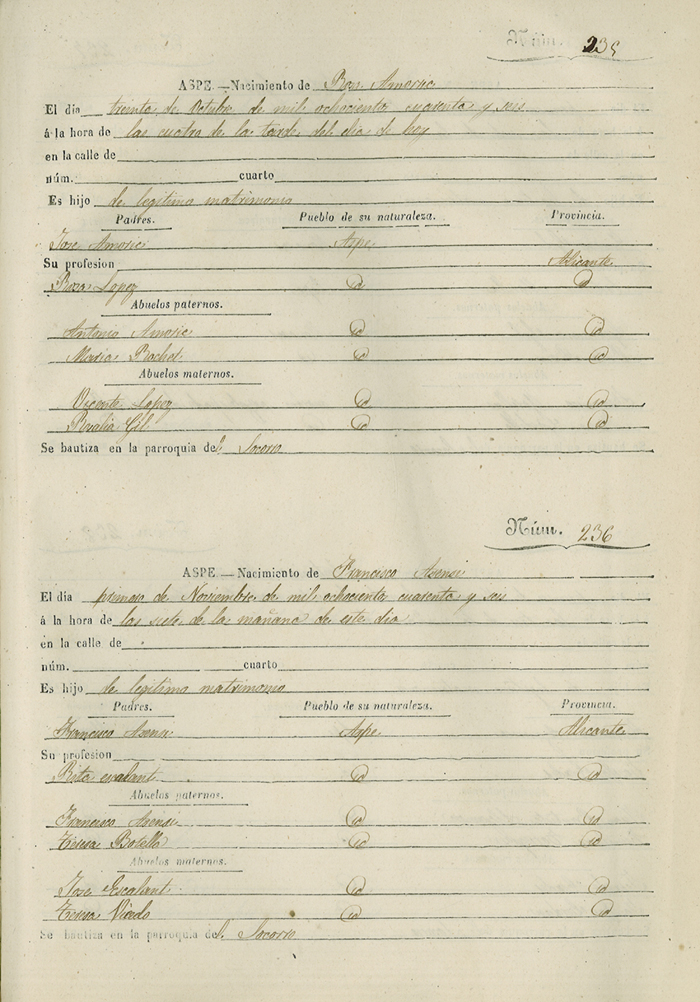 Núm. 235
ASPE.—Nacimiento de Ros. Amoric
El dia treinta de Octubre de mil ochocientos cuarenta y seis
á la hora de las cuatro de la tarde del dia de hoy
en la calle de
núm. cuarto
Es hijo de legitimo matrimonio
Padres. Pueblo de su naturaleza. Provincia.
Jose Amoric Aspe
Su profesion Alicante
Rosa Lopez id id
Abuelos paternos.
Antonio Amoric id id
Maria id id
Abuelos maternos.
Vicente Lopez id id
Rosalia Gil id id
Se bautiza en la parroquia del Socorro
Núm. 236
ASPE.—Nacimiento de Francisco Asensi
El dia primero de Noviembre de mil ochocientos cuarenta y seis
á la hora de las siete de la mañana de este dia
en la calle de
núm. cuarto
Es hijo de legitimo matrimonio
Padres. Pueblo de su naturaleza. Provincia.
Francisco Asensi Aspe Alicante
Su profesion
Rita escalant id id
Abuelos paternos.
Francisco Asensi id id
Teresa Botella id id
Abuelos maternos.
Jose Escalant id id
Teresa id id
Se bautiza en la parroquia del Socorro